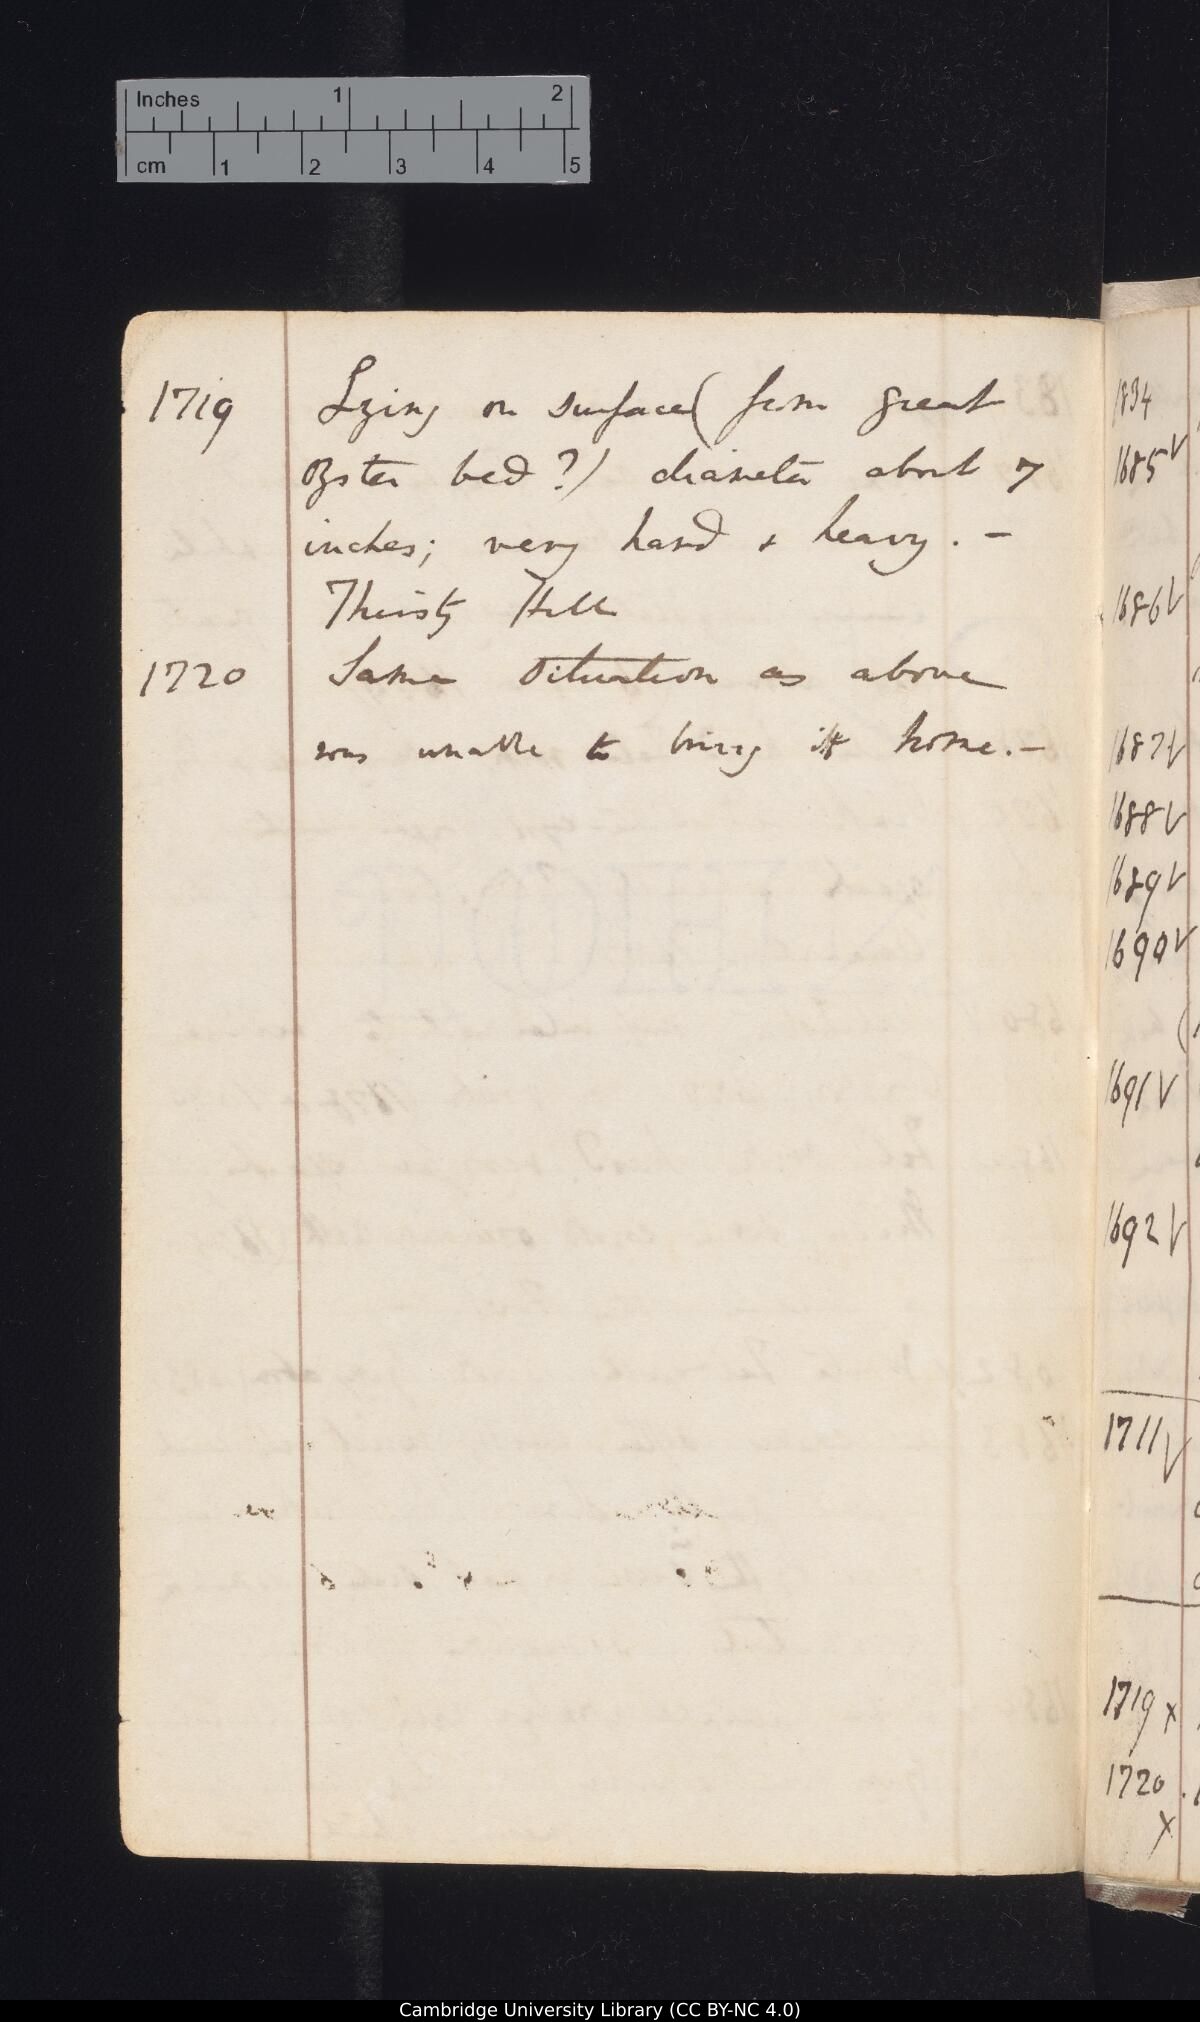 Inches 1 2
cm 1 2 3 4 5
1719 Lying on surface (from great
Oyster bed?) diameter about 7
inches; very hard & heavy. —
Thirsty Hill
1720 Same situation as above
was unable to bring it home. —
1834
1685
1686
1687
1688
1689
1690
1691
1692
1711
1719 x
1720
x
Cambridge University Library (CC BY-NC 4.0)